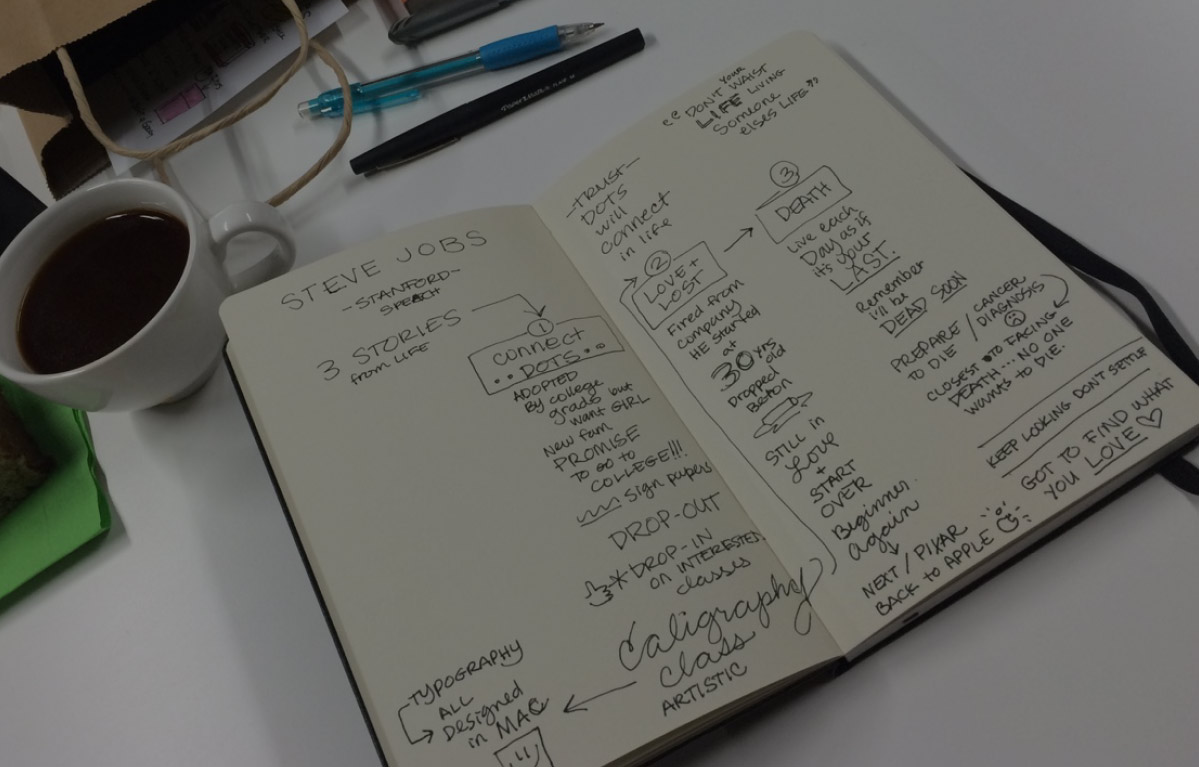 STEVE JOBS
-STANFORD-
SPEACH
3 STORIES
from LIFE
1
connect
DOTS
ADOPTED
By college
grads but
want GIRL
New fam
PROMISE
to go to
COLLEGE!!!
sign papers
DROP-OUT
* DROP-IN
on INTERESTED
classes
Caligraphy
class
ARTISTIC
TYPOGRAPHY
ALL
Designed
in MAC
-TRUST-
DOTS
will
connect
in life
2
LOVE +
LOST
Fired from
company
HE STARTED
at
30 yrs
old
Dropped
Baton
STILL in
LOVE
+
START
OVER
Beginner
again
NEXT / PIXAR
BACK to APPLE
"DON'T WAIST
Your
LIFE LIVING
Someone
elses LIFE"
3
DEATH
Live each
Day as if
it's your
LAST.
Remember
i'll be
DEAD SOON
PREPARE / CANCER
TO DIE DIAGNOSIS
CLOSEST TO FACING
DEATH... NO ONE
WANTS TO DIE.
KEEP LOOKING DON'T SETTLE
GOT TO FIND WHAT
YOU LOVE